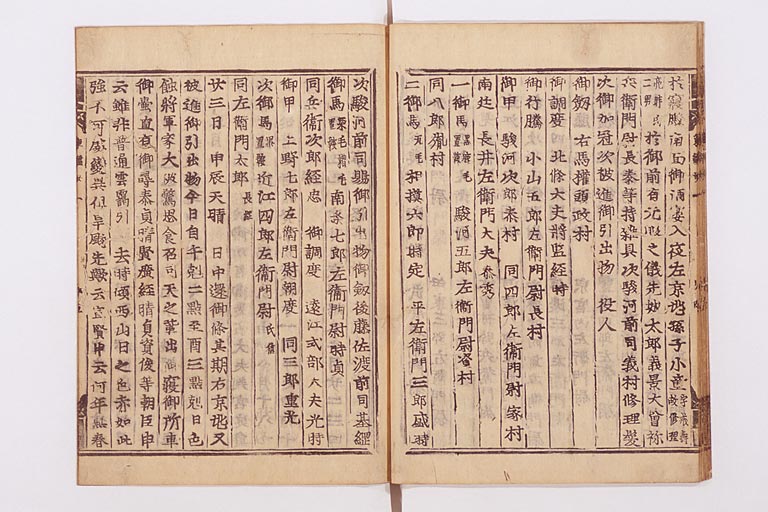 於寢殿南面御酒宴入夜左京兆孫子小童字戒壽故修理
亮時氏二男於御前有元服之儀先城太郎義景大曽祢
兵衛門尉長泰等持雜具次駿河前司義村修理亮
次御加冠次被進御引出物 役人
御釼 右馬權頭政村
御調度 北條大夫將監經時
御行騰 小山五郎左衛門尉長村
御甲 駿河次郎泰村 同四郎左衛門尉家村
南廷 長井左衛門大夫泰秀
一御馬置鞍 駿河五郎左衛門尉資村
同八郎胤村
二御馬 相摸六郎時定 平左衛門三郎盛時
次駿河前司賜御引出物御釼後藤佐渡前司基綱
御馬栗毛糟毛置鞍 南条七郎左衛門尉時貞
同兵衛次郎經忠 御調度 遠江式部大夫光時
御甲 上野七郎左衛門尉朝廣 同三郎重光
次御馬黒置鞍 近江四郎左衛門尉氏信
同左衛門太郎長經
廿三日 甲辰 天晴 日中還御條其期右京兆又
被進御引出物今日自午剋二點至酉三點剋日色
蝕將軍家大被驚思食召司天之輩出 寢御所車
御簾直有御尋泰貞晴賢廣經晴貞資俊等朝臣申
云雖非普通雲霧引 去時頃西山日之色赤如此
強不可成變異但旱颷先兆云宣賢申云何年暮春